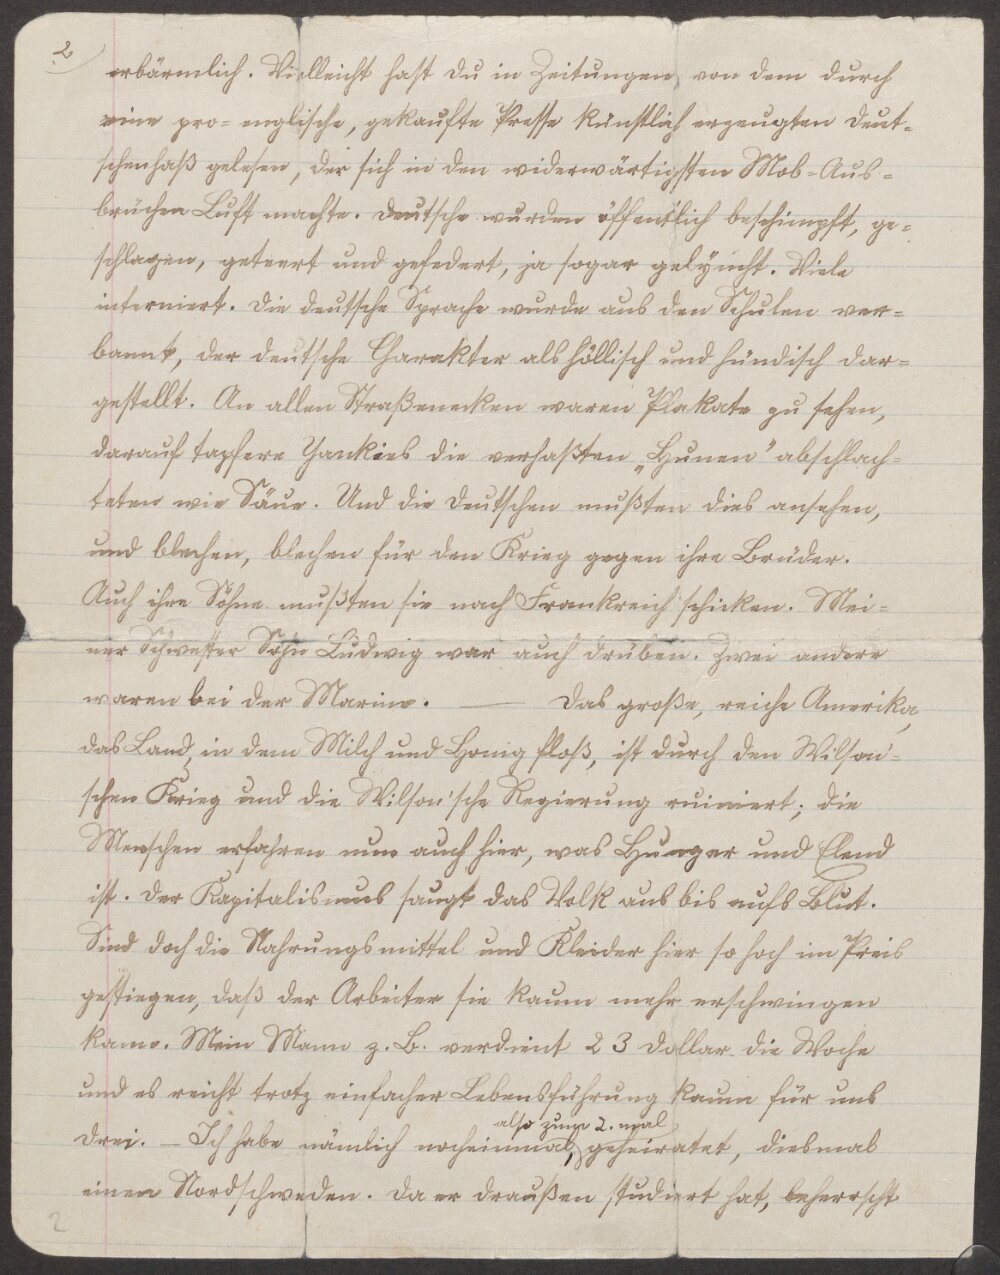 2
erbärmlich. Vielleicht hast du in Zeitungen von dem durch
eine pro-englische, gekaufte Presse künstlich erzeugten Deut-
schenhaß gelesen, der sich in den widerwärtigsten Mob-Aus-
brüchen Luft machte. Deutsche wurden öffentlich beschimpft, ge-
schlagen, geteert und gefedert, ja sogar gelyncht. Viele
interniert. Die deutsche Sprache wurde aus den Schulen ver-
bannt, der deutsche Charakter als höllisch und hündisch dar-
gestellt. An allen Straßenecken waren Plakate zu sehen,
darauf tapfere Yankies die verhaßten „Hunen" abschlach-
teten wie Säue. Und die Deutschen mußten dies ansehen,
und blechen, blechen für den Krieg gegen ihre Brüder.
Auch ihre Söhne mußten sie nach Frankreich schicken. Mei-
ner Schwester Sohn Ludwig war auch drüben. Zwei andere
waren bei der Marine. — Das große, reiche Amerika,
das Land, in dem Milch und Honig floß, ist durch den Wilson'-
schen Krieg und die Wilson'sche Regierung ruiniert; die
Menschen erfahren nun auch hier, was Hunger und Elend
ist. Der Kapitalismus saugt das Volk aus bis aufs Blut.
Sind doch die Nahrungsmittel und Kleider hier so hoch im Preis
gestiegen, daß der Arbeiter sie kaum mehr erschwingen
kann. Mein Mann z. B. verdient 23 Dollar die Woche
und es reicht trotz einfacher Lebensführung kaum für uns
also zum 2. mal
drei. — Ich habe nämlich nocheinmal, geheiratet, diesmal
einen Nordschweden. Da er draußen studiert hat, beherrscht
2